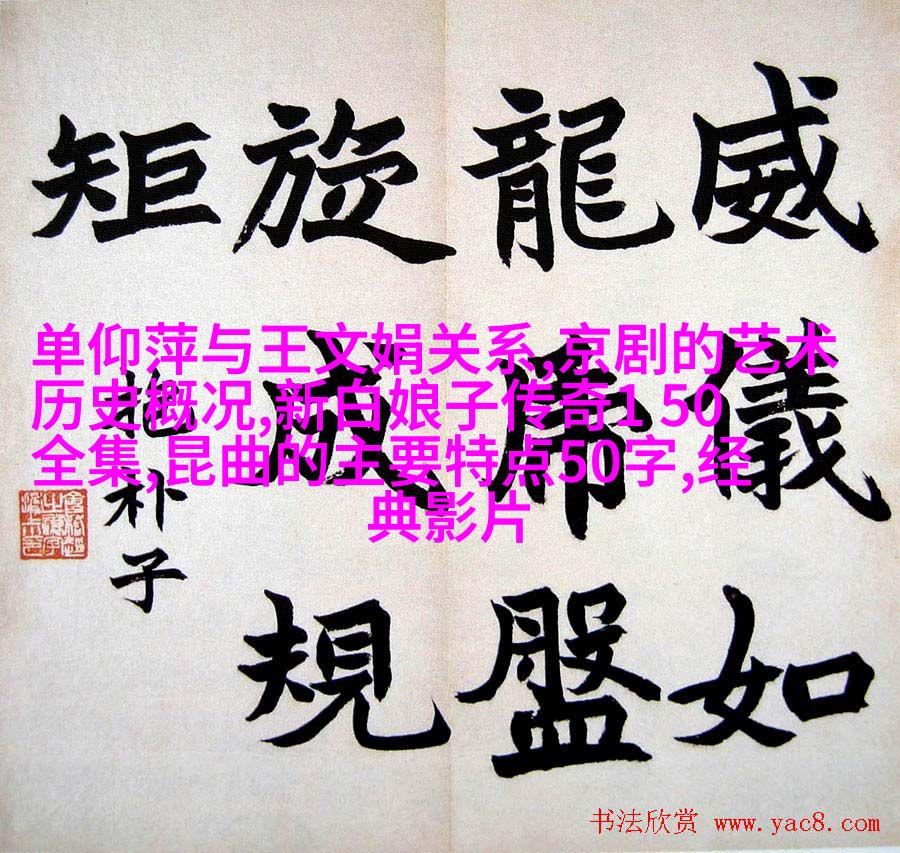 威儀如
龍虎盤
旋成規
矩
抱朴子
单仰萍与王文娟关系,京剧的艺术
历史概况,新白娘子传奇1 50
全集,昆曲的主要特点50字,经
典影片
书法欣赏 www.yac8.com